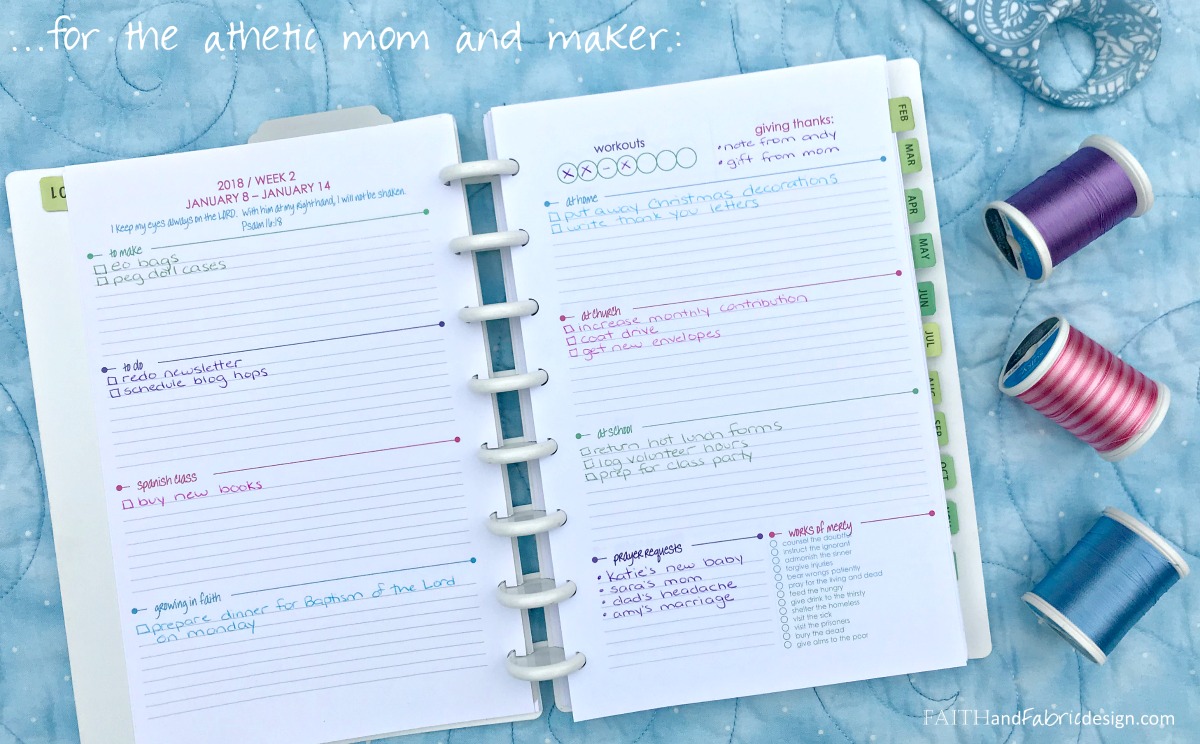 ...for the athetic mom and maker:
2018 / WEEK 2
JANUARY 8 – JANUARY 14
I keep my eyes always on the LORD. With him at my right hand, I will not be shaken.
Psalm 16:8
to make
eo bags
peg doll cases
to do
redo newsletter
schedule blog hops
spanish class
buy new books
growing in faith
prepare dinner for Baptism of the Lord
on monday
workouts
X X – X
giving thanks:
• note from andy
• gift from mom
at home
put away Christmas decorations
write thank you letters
at church
increase monthly contribution
coat drive
get new envelopes
at school
return hot lunch forms
log volunteer hours
prep for class party
prayer requests
• katie's new baby
• sara's mom
• dad's headache
• amy's marriage
works of mercy
counsel the doubtful
instruct the ignorant
admonish the sinner
forgive injuries
bear wrongs patiently
pray for the living and dead
feed the hungry
give drink to the thirsty
shelter the homeless
visit the sick
visit the prisoners
bury the dead
give alms to the poor
FEB
MAR
APR
MAY
JUN
JUL
AUG
SEP
OCT
FAITHandFabricdesign.com